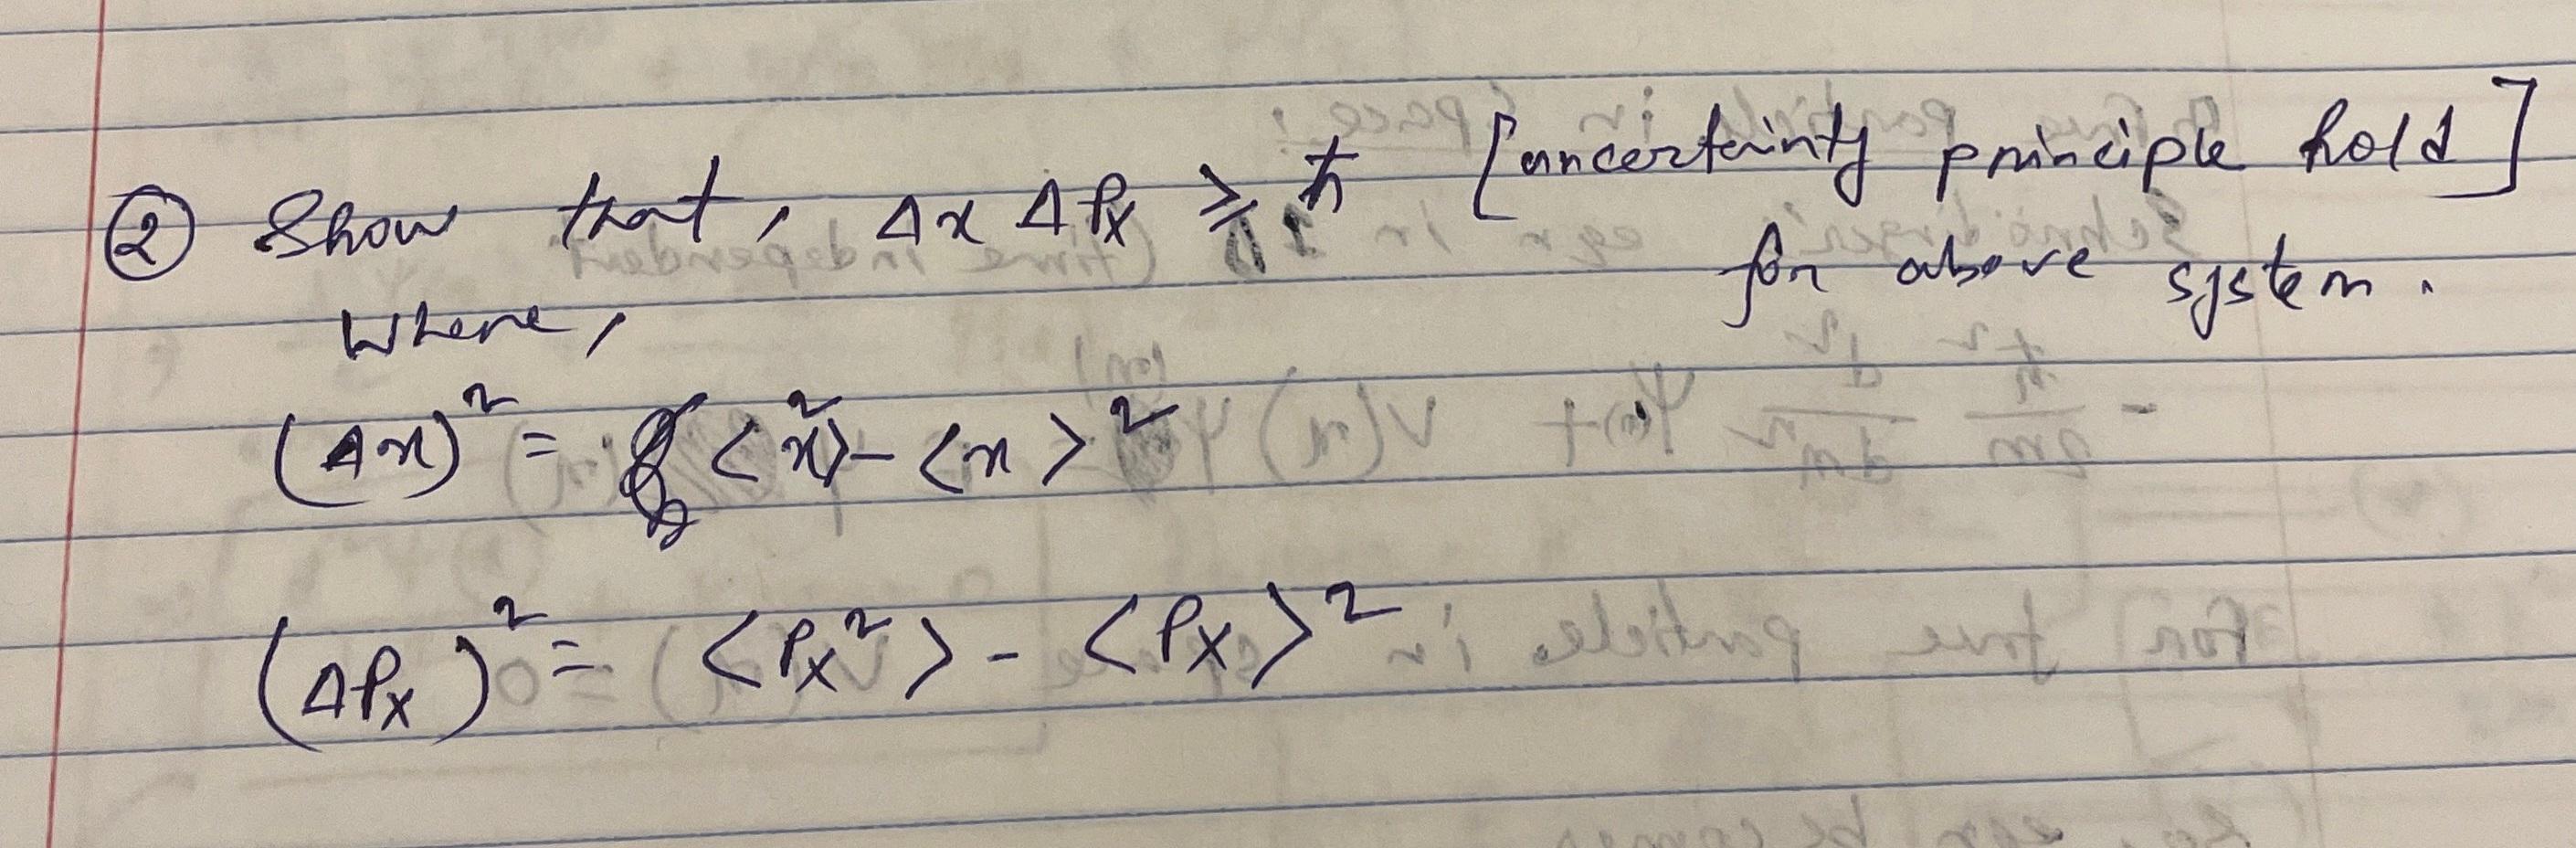 ② Show that, Δx ΔPx ⩾ ħ [uncertainty principle hold]
for above system.
where,
(Δx)² = <x²> - <x>²
(ΔPx)² = <Px²> - <Px>²